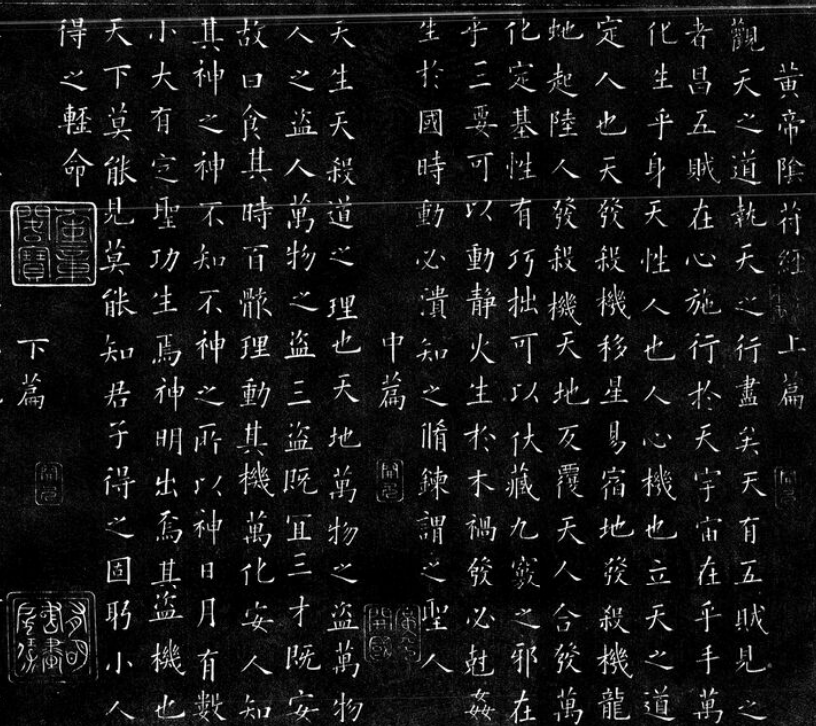 黃帝陰符經 上篇
觀天之道執天之行盡矣天有五賊見之
者昌五賊在心施行於天宇宙在乎手萬
化生乎身天性人也人心機也立天之道
定人也天發殺機移星易宿地發殺機龍
虵起陸人發殺機天地反覆天人合發萬
化定基性有巧拙可以伏藏九竅之邪在
乎三要可以動靜火生於木禍發必尅姦
生於國時動必潰知之脩鍊謂之聖人
中篇
天生天殺道之理也天地萬物之盜萬物
人之盜人萬物之盜三盜既冝三才既安
故曰食其時百骸理動其機萬化安人知
其神之神不知不神之所以神日月有數
小大有定聖功生焉神明出焉其盜機也
天下莫能見莫能知君子得之固躬小人
得之輕命
下篇